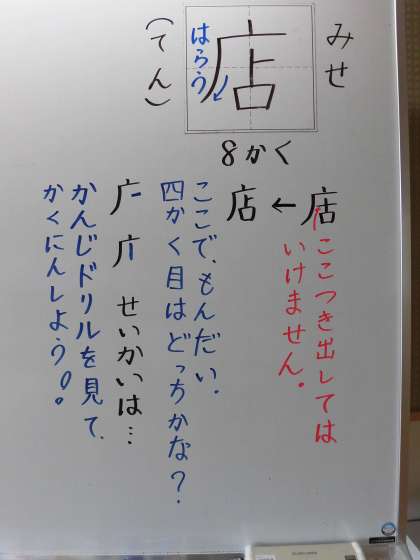 みせ
店
はらう
(てん)
8かく
店←店
ここつき出しては
いけません。
ここで、もんだい。
四かく目はどっちかな?
せいかいは…
かんじドリルを見て、
かくにんしよう!。